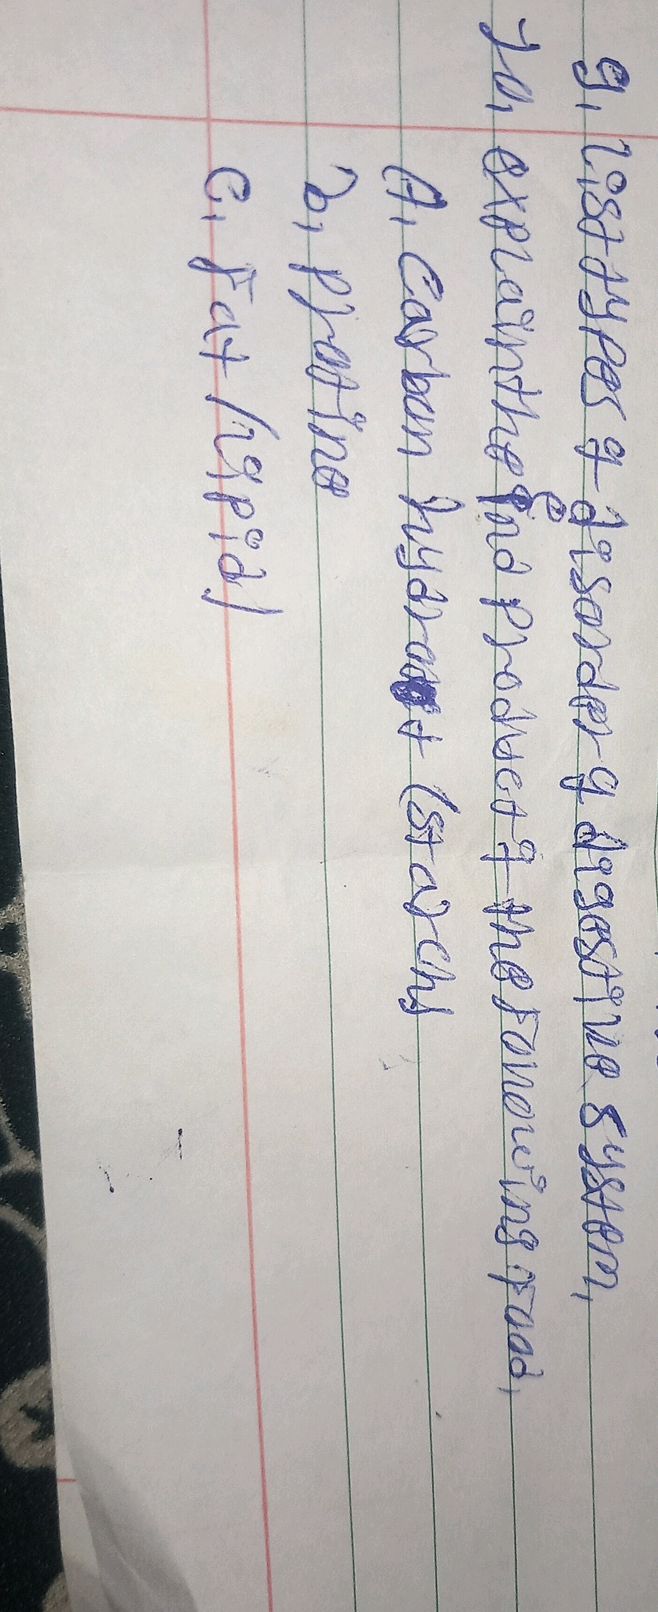 9, List types of disorder of digestive system,
10, explain the End product of the following food,
A, Carban hydrat (starch)
b, Pratine
C, Fat (lipid)